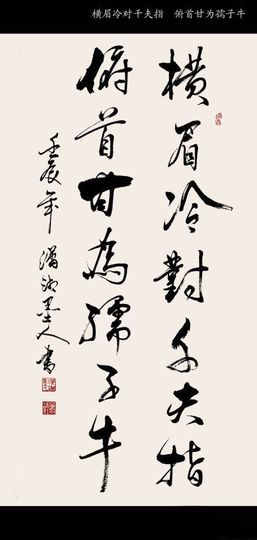 横眉冷对千夫指 俯首甘为孺子牛
橫眉冷對千夫指
俯首甘為孺子牛
壬辰年 潇湘墨人書